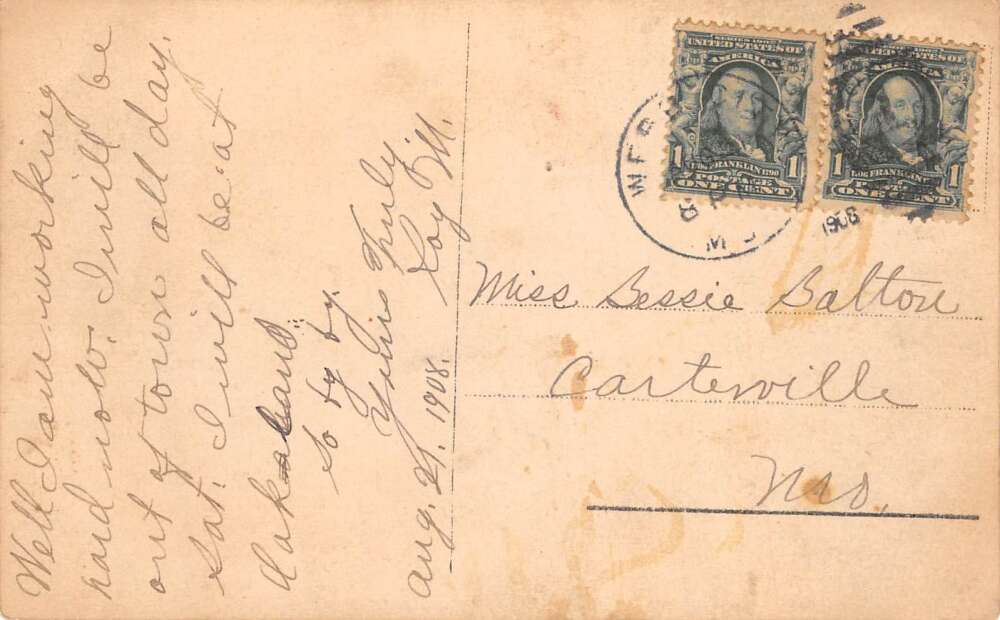 Well I am working
hard now. I will be
out of town all day.
Sat. I will be at
Oakland
so by by.
Yours Truly
Roy M.
Aug. 21. 1908.
SERIES 1902
UNITED STATES OF
AMERICA
1706 FRANKLIN 1790
1 POSTAGE 1
ONE CENT
UNITED STATES OF
AMERICA
1706 FRANKLIN
1
ONE CENT
WEBB
MO
1908
Miss Bessie Balton
Carterville
Mo.